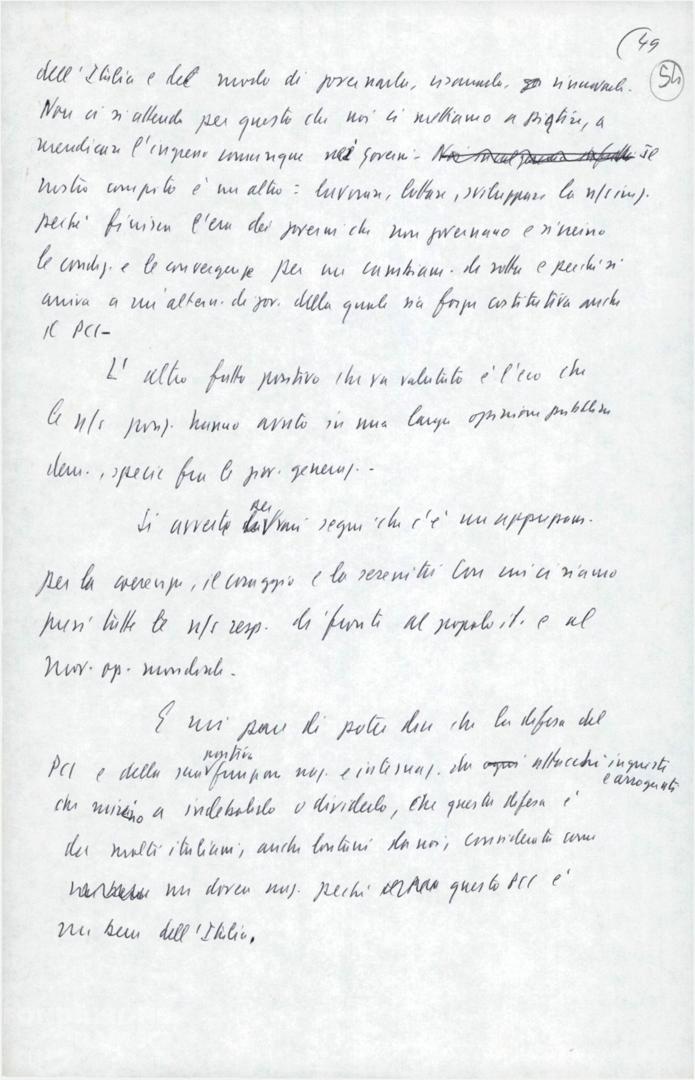 (49
54
dell'Italia e del modo di governarla, risanarla, rinnovarla.
Non ci si attenda per questo che noi ci mettiamo a piatire, a
mendicare l'ingresso comunque nei governi - Il
nostro compito è un altro: lavorare, lottare, sviluppare la n/s iniz.
perché finisca l'era dei governi che non governano e si creino
le condiz. e le convergenze per un cambiam. di rotta e perché si
arriva a un'altern. di gov. della quale sia forza costitutiva anche
il PCI-
L'altro fatto positivo che va valutato è l'eco che
le n/s posiz. hanno avuto in una larga opinione pubblica
dem., specie fra le giov. generaz. -
Si avverte per vari segni che c'è un apprezzam.
per la coerenza, il coraggio e la serenità con cui ci siamo
presi tutte le n/s resp. di fronte al popolo it. e al
mov. op. mondiale.
E mi pare di poter dire che la difesa del
PCI e della sua positiva funzione naz. e internaz. da attacchi ingiusti
e arroganti
che mirino a indebolirlo o dividerlo, che questa difesa è
da molti italiani, anche lontani da noi, considerata come
un dovere naz. perché questo PCI è
un bene dell'Italia.